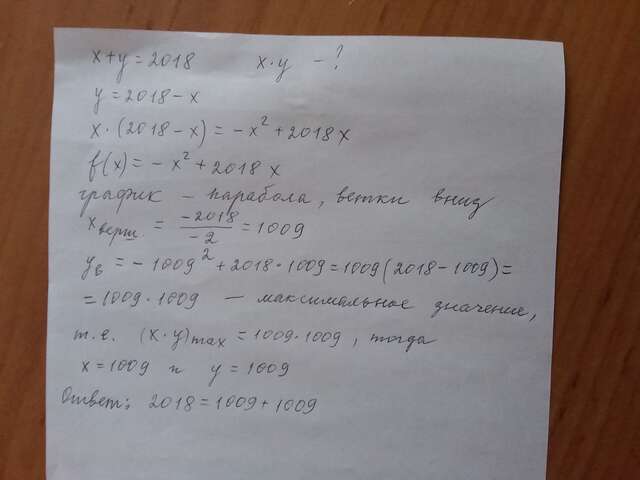 x+y=2018 x·y - ?
y=2018-x
x·(2018-x)=-x²+2018x
f(x)=-x²+2018x
график - парабола, ветки вниз
xверш.=-2018/-2=1009
yв=-1009²+2018·1009=1009(2018-1009)=
=1009·1009 - максимальное значение,
т.е. (x·y)max=1009·1009, тогда
x=1009 и y=1009
Ответ: 2018=1009+1009